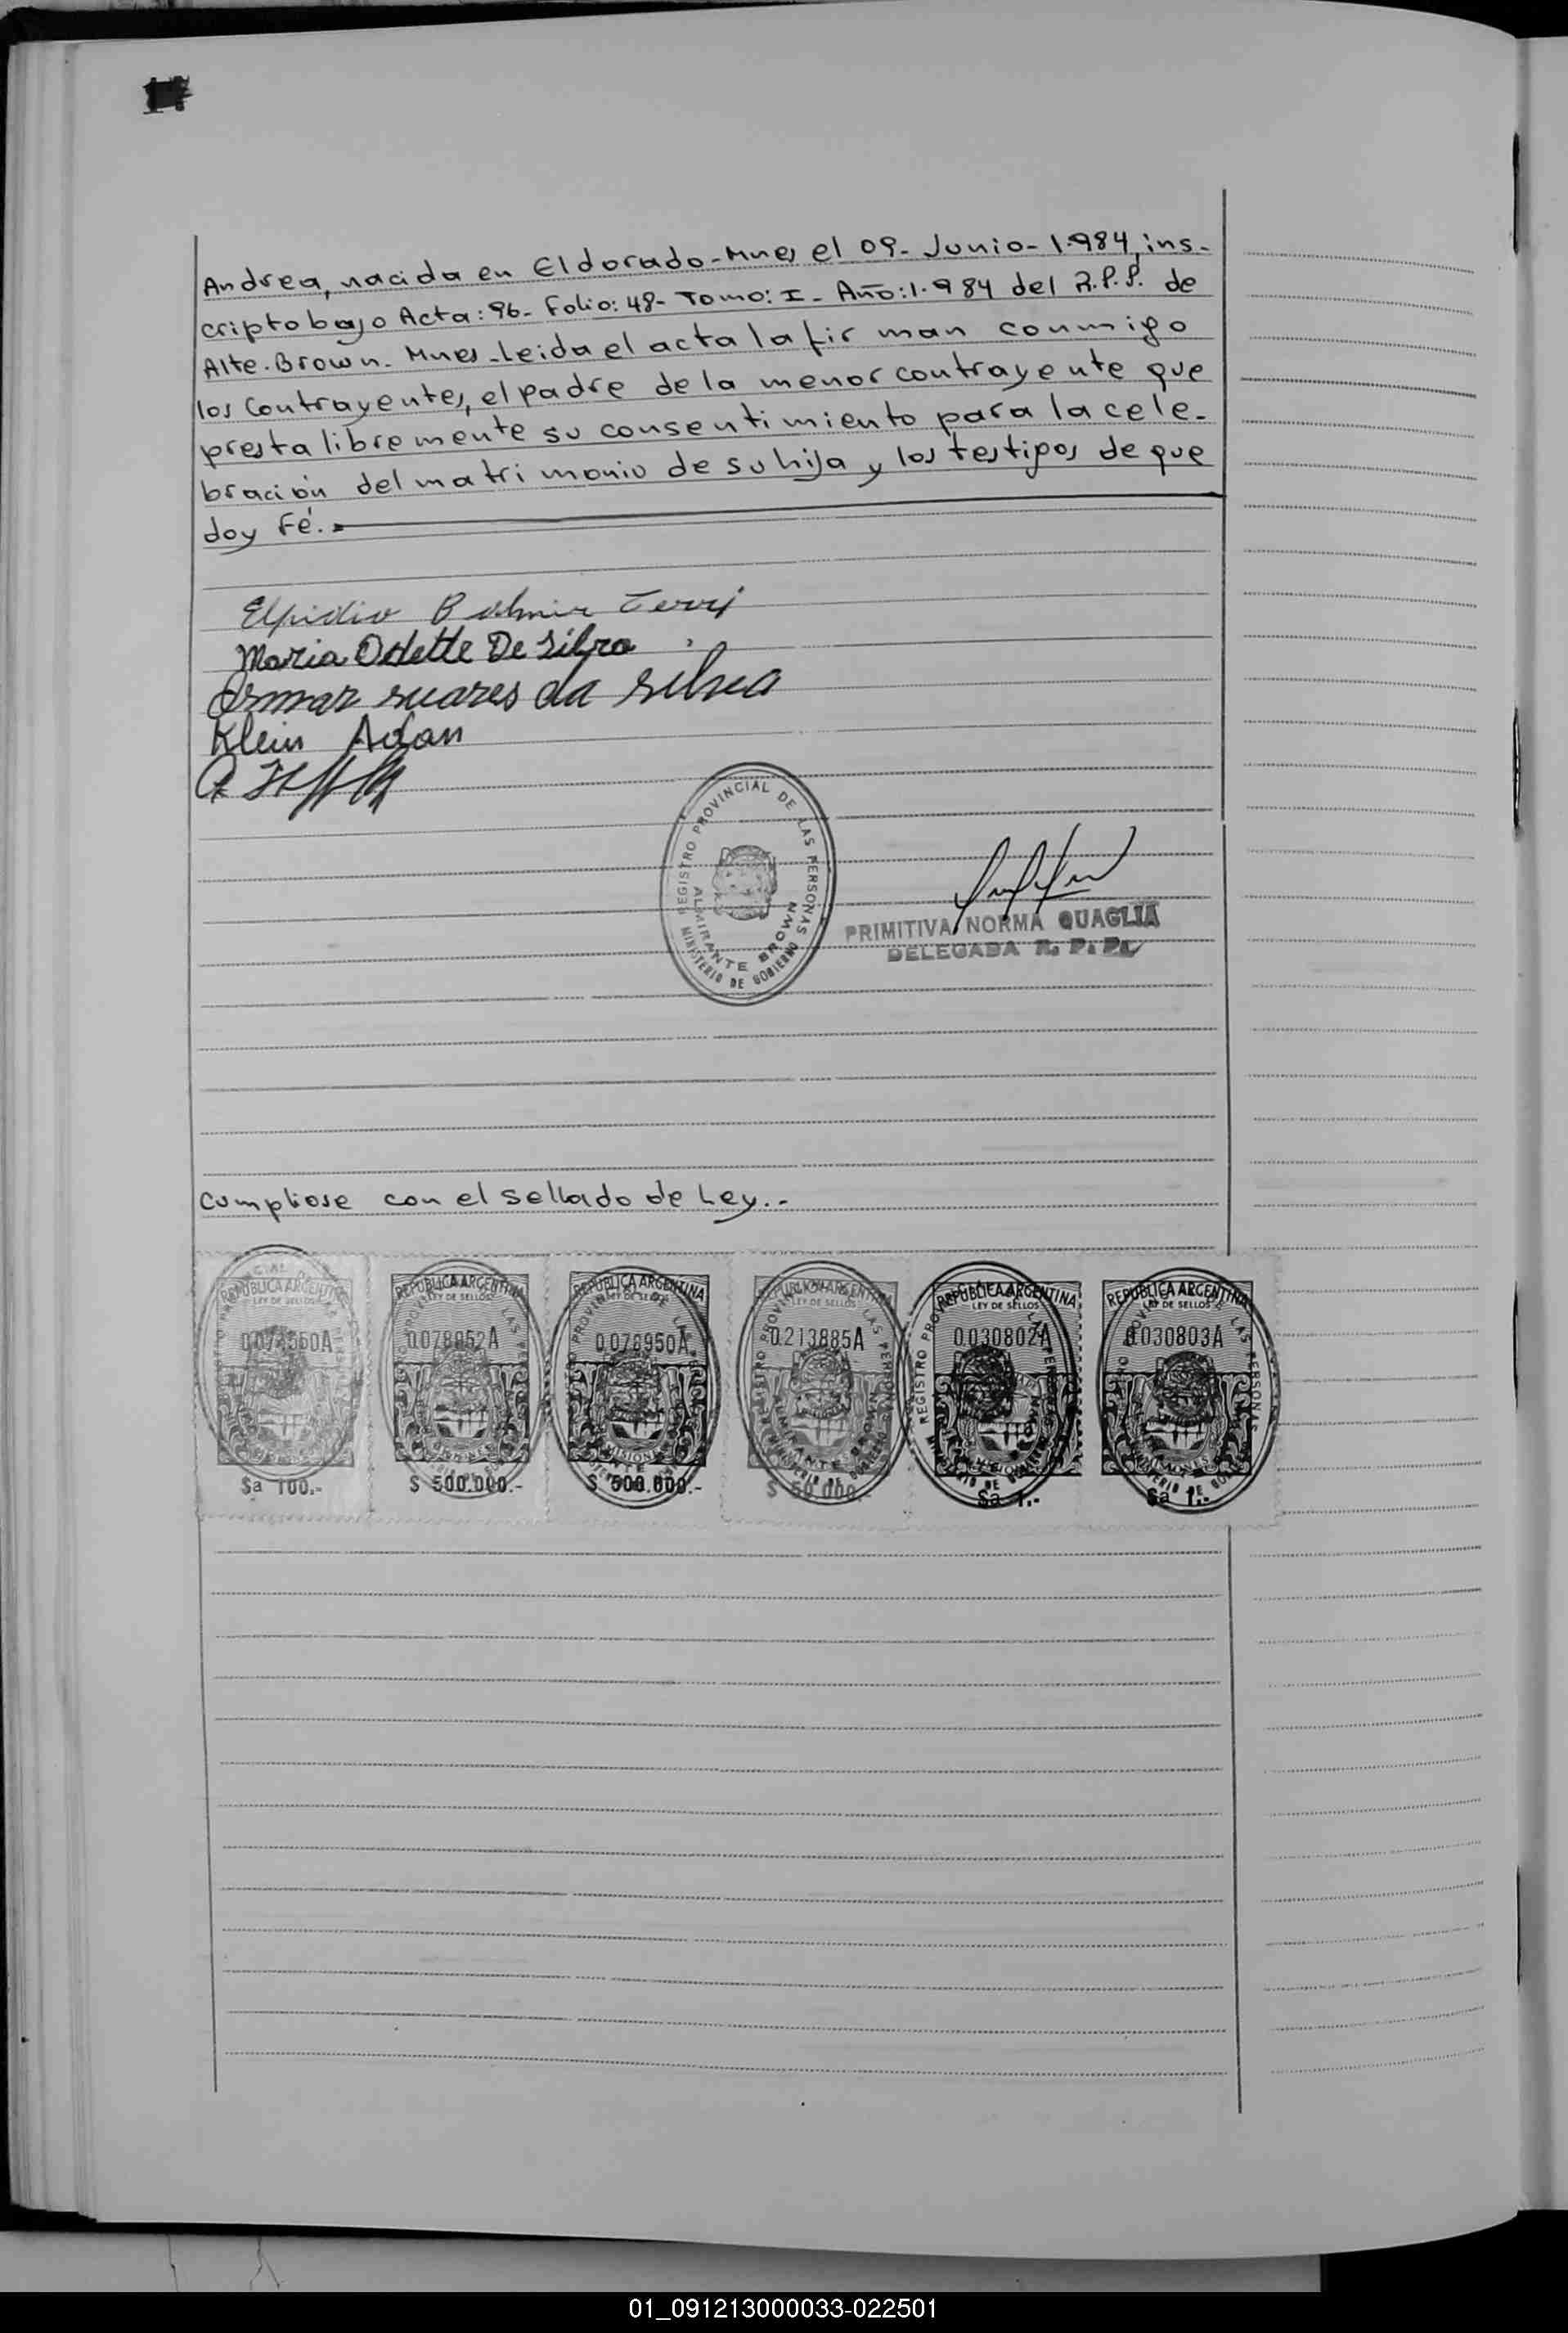 Andrea, nacida en Eldorado-Mnes el 09- Junio- 1.984, ins-
cripto bajo Acta: 96- Folio: 48- Tomo: I- Año: 1.984 del R.P.P. de
Alte. Brown- Mnes- Leida el acta la firman conmigo
los Contrayentes, el padre de la menor contrayente que
presta libremente su consentimiento para la cele-
bración del matrimonio de su hija y los testigos de que
doy Fé.-
Elpidio Balmir
Maria Odette De Silva
Osmar suares da silva
Klein Adan
REGISTRO PROVINCIAL DE LAS PERSONAS
ALMIRANTE BROWN
MINISTERIO DE GOBIERNO
PRIMITIVA NORMA QUAGLIA
DELEGADA R. P. P.
Cumpliose con el sellado de Ley.-
REPUBLICA ARGENTINA REPUBLICA ARGENTINA REPUBLICA ARGENTINA REPUBLICA ARGENTINA REPUBLICA ARGENTINA REPUBLICA ARGENTINA
LEY DE SELLOS LEY DE SELLOS LEY DE SELLOS LEY DE SELLOS LEY DE SELLOS LEY DE SELLOS
0.078952A 0.078950A 0.213885A 0.030802A 0.030803A
$a 100.- $ 500.000.- $ 500.000.- $ 50.000.- $a 1.- $a 1.-
01_091213000033-022501